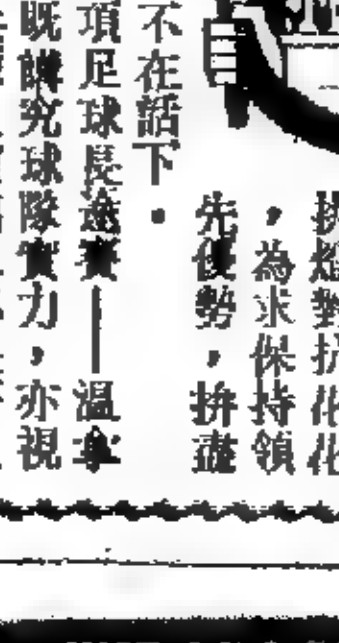 對抗花花
，為求保持領
先優勢，拚盡
不在話下。
項足球長途賽——溫拿
既講究球隊實力，亦視